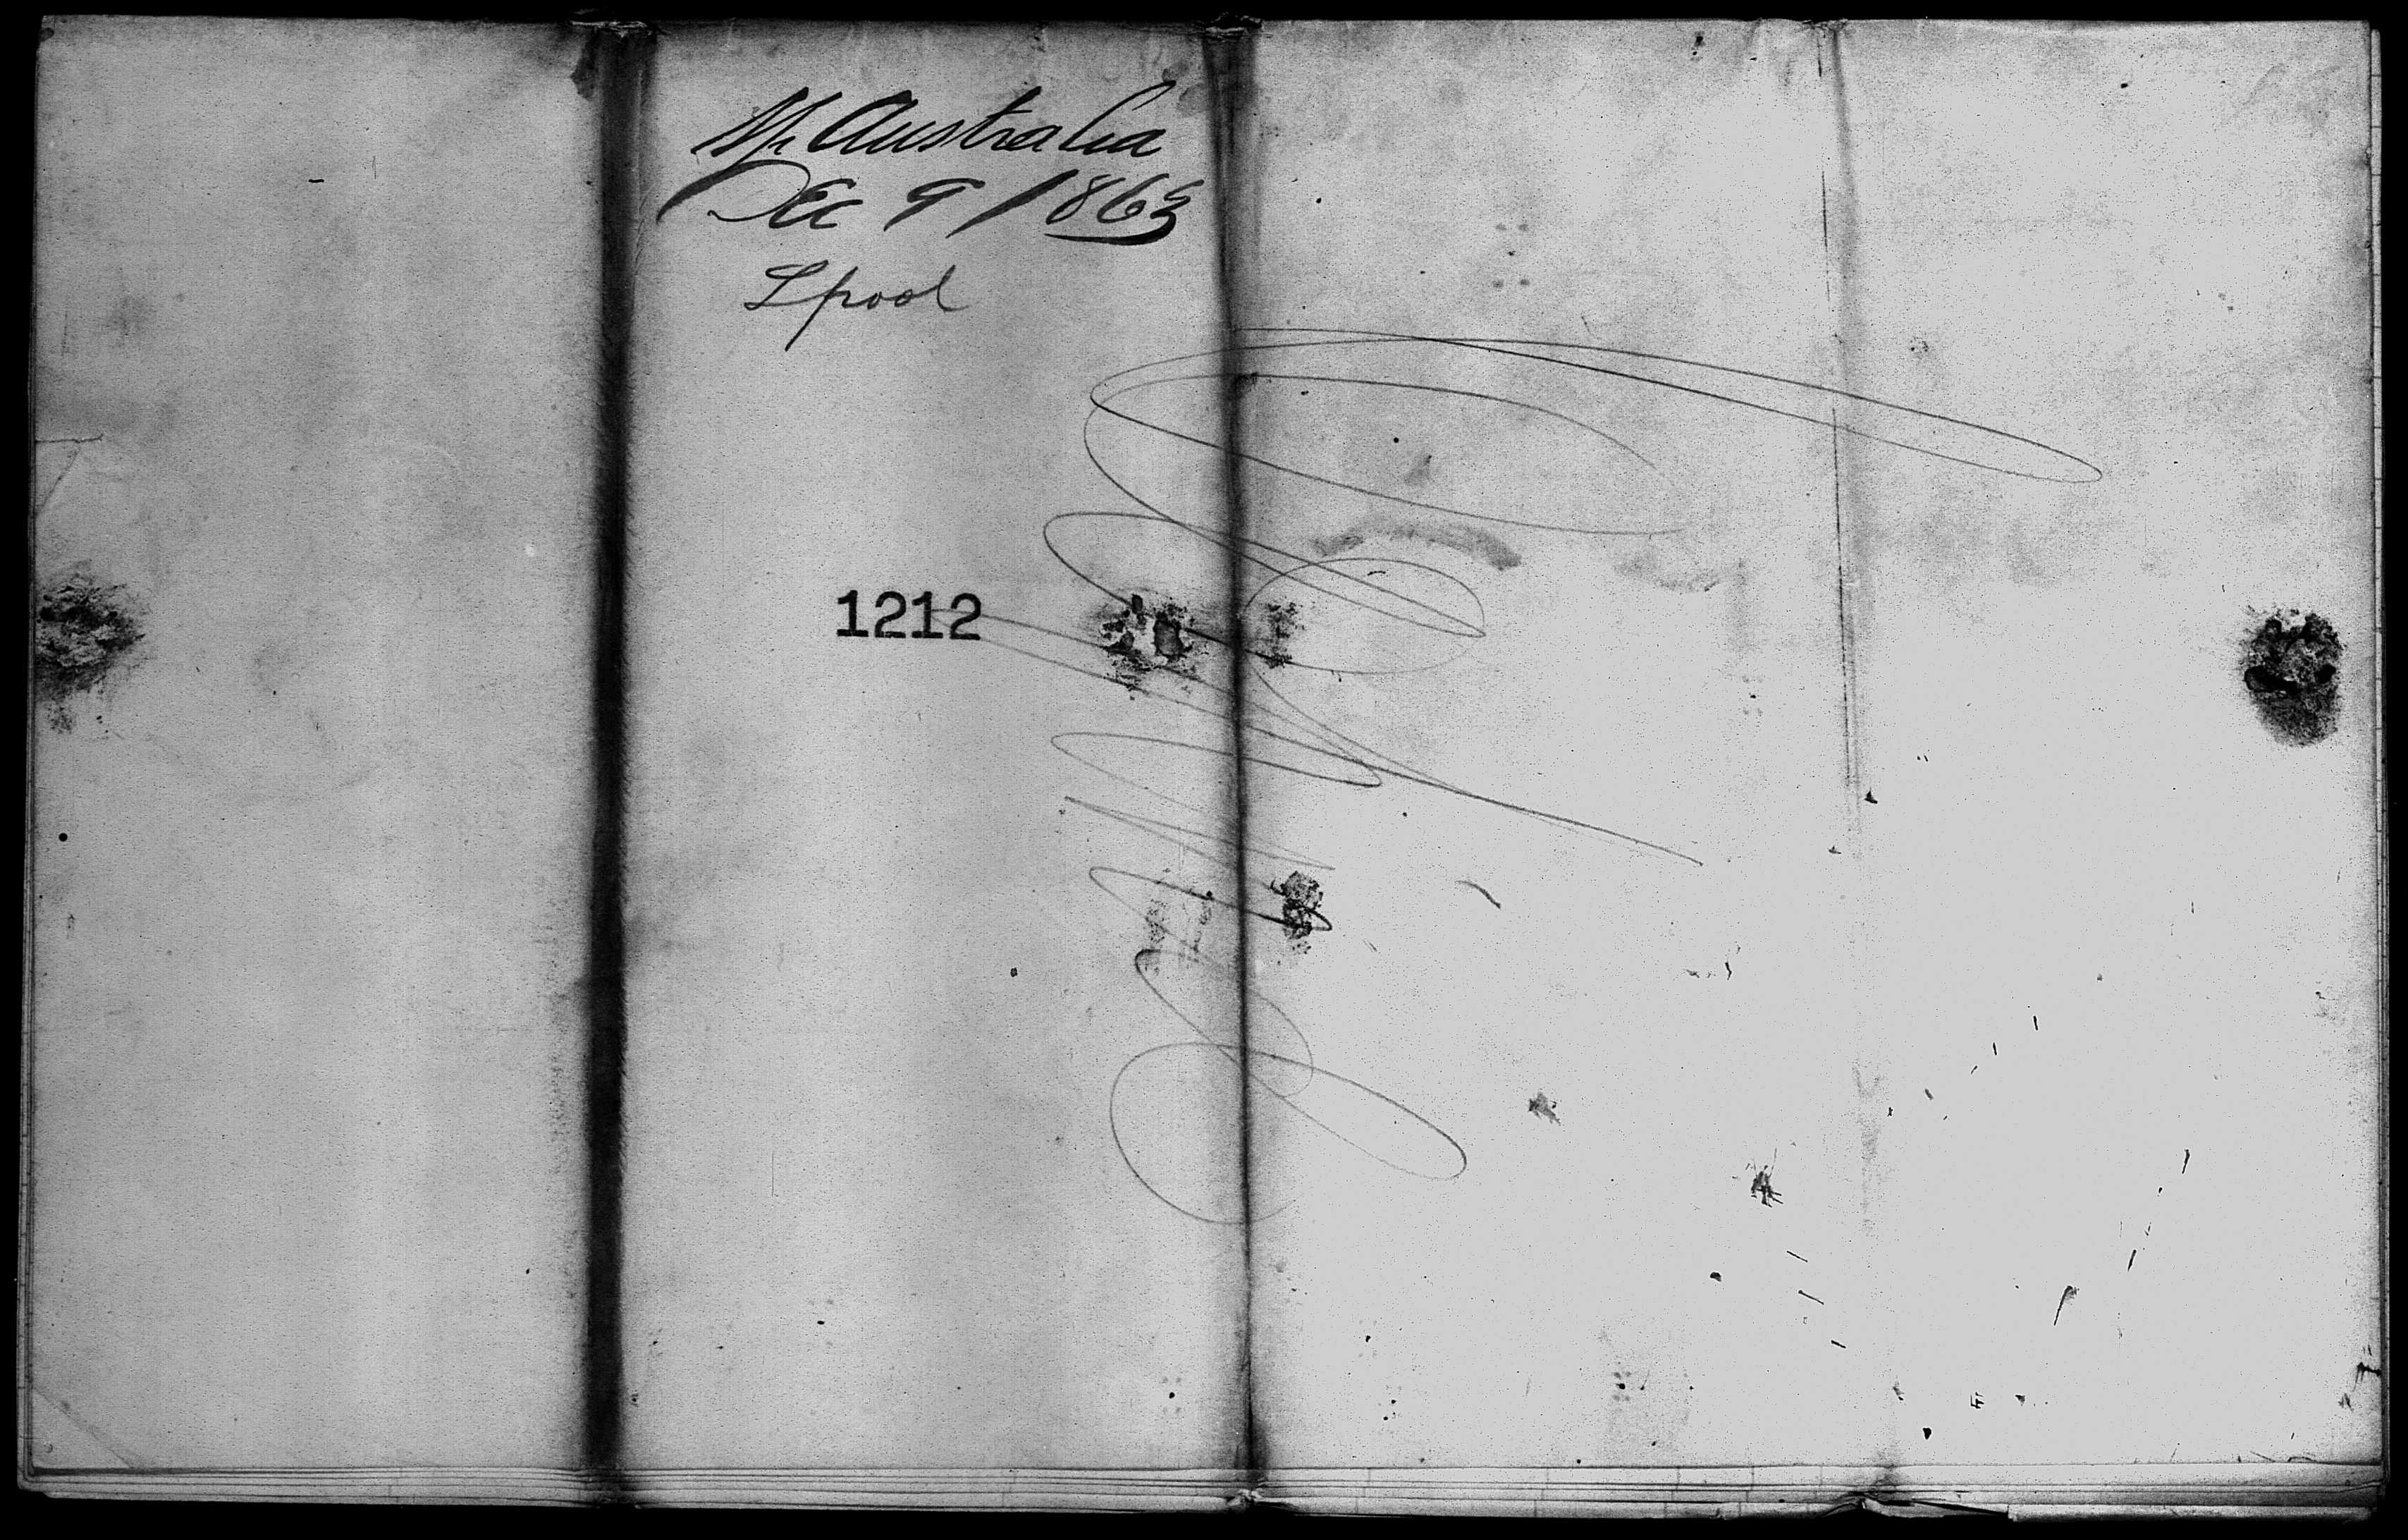 Str Australia
Dec 9 / 1863
Lpool
1212